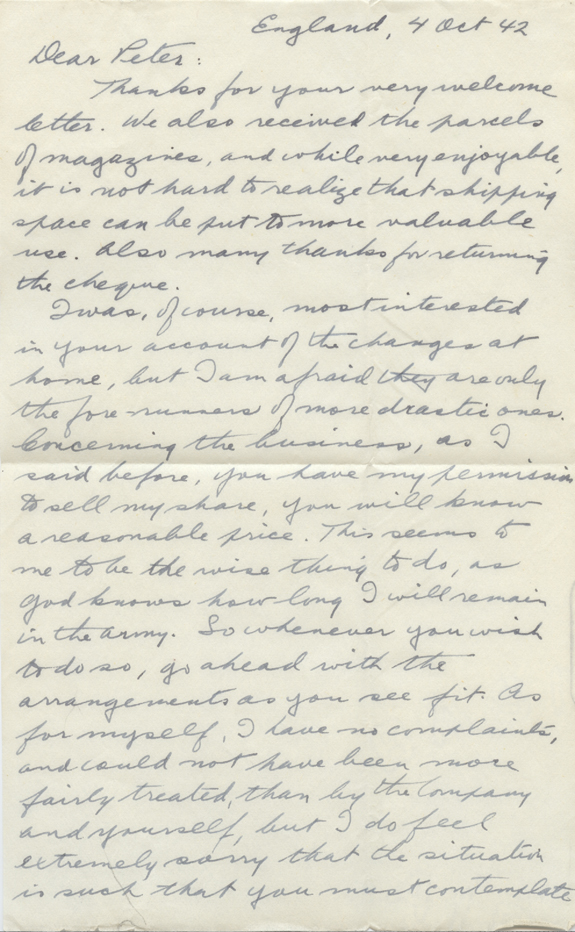 England, 4 Oct 42
Dear Peter:
Thanks for your very welcome
letter. We also received the parcels
of magazines, and while very enjoyable,
it is not hard to realize that shipping
space can be put to more valuable
use. Also many thanks for returning
the cheque.
I was, of course, most interested
in your account of the changes at
home, but I am afraid they are only
the forerunners of more drastic ones.
Concerning the business, as I
said before, you have my permission
to sell my share, you will know
a reasonable price. This seems to
me to be the wise thing to do, as
God knows how long I will remain
in the army. So whenever you wish
to do so, go ahead with the
arrangements as you see fit. As
for myself, I have no complaints,
and could not have been more
fairly treated, than by the Company
and yourself, but I do feel
extremely sorry that the situation
is such that you must contemplate